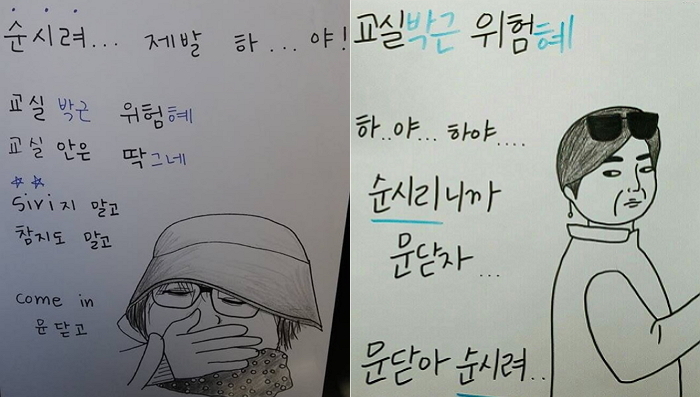 순시려... 제발 하...야!
교실 박근 위험혜
교실 안은 딱그네
siri지 말고
참지도 말고
come in
문닫고
교실박근 위험혜
하..야... 하야....
순시리니까
문닫자...
문닫아 순시려..